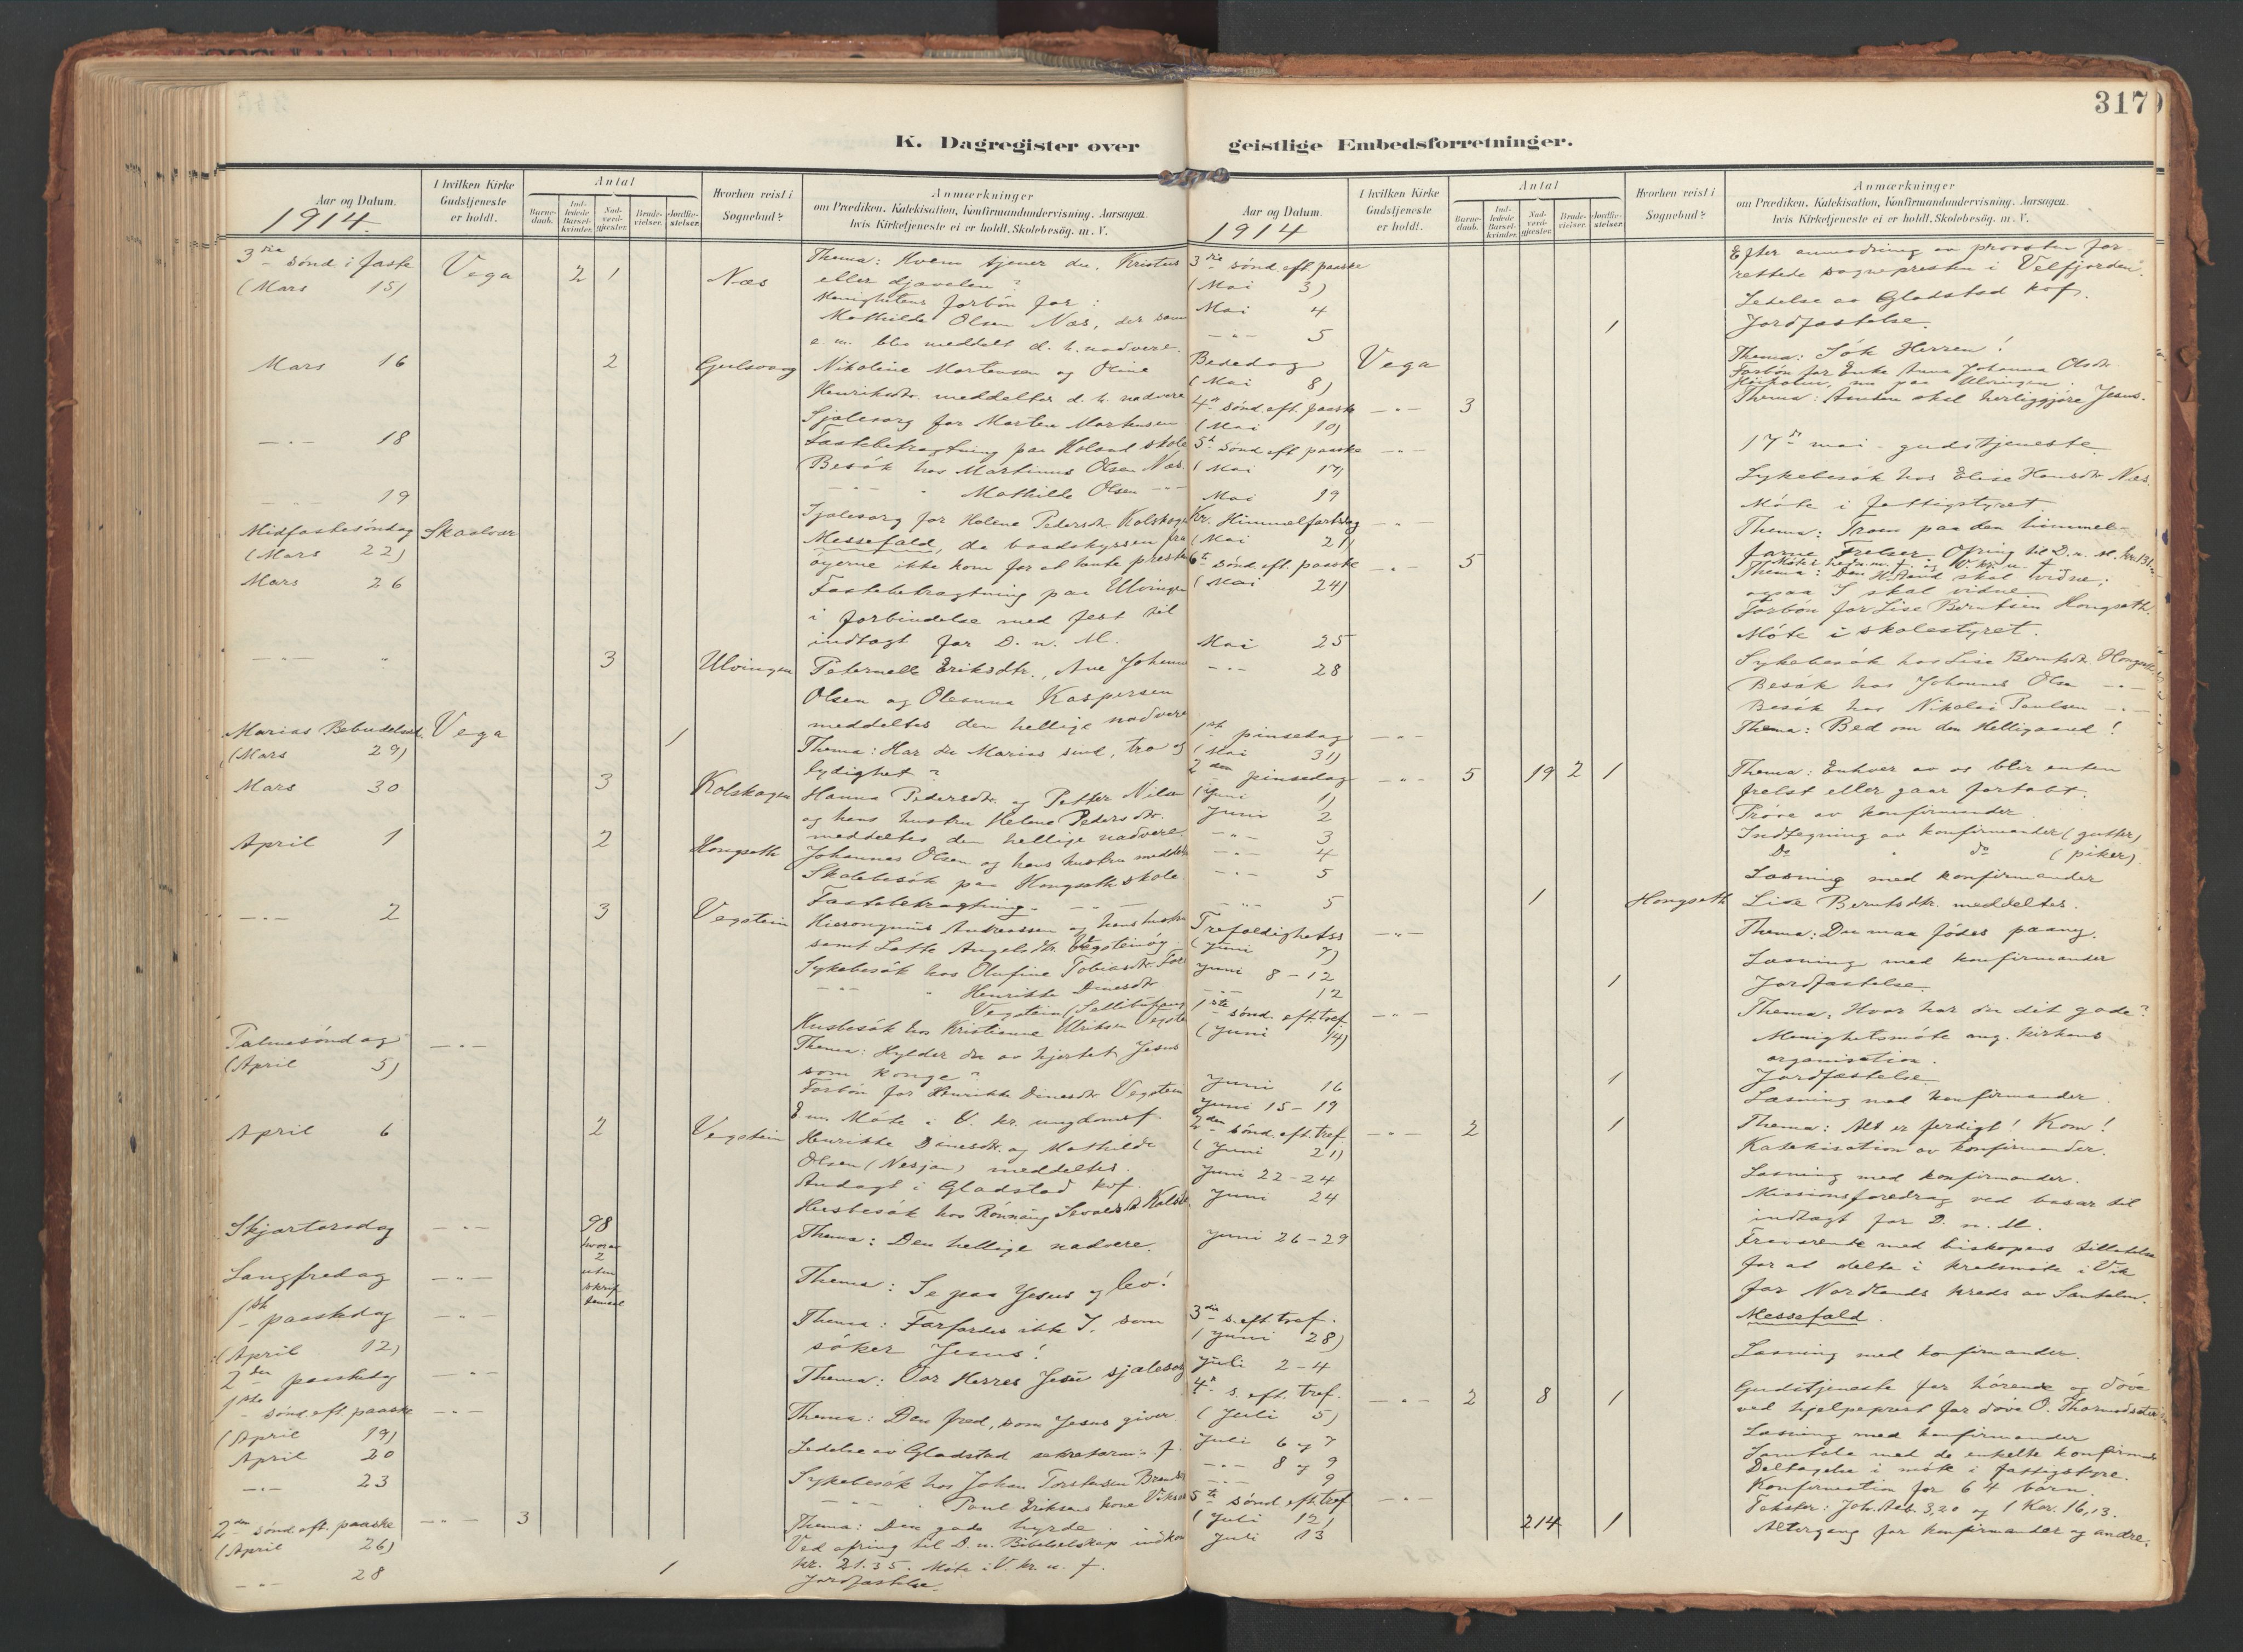 317
K. Dagregister over geistlige Embedsforretninger.
Aar og Datum.
I hvilken Kirke Gudstjeneste er holdt.
Antal
Barne-daab.
Ind-ledede Barsel-kvinder.
Nad-verd-gjester.
Brude-vielser.
Jordfæ-stelser.
Hvorhen reist i Sognebud?
Anmærkninger
om Prædiken, Katekisation, Konfirmandundervisning, Aarsagen
hvis Kirketjeneste ei er holdt, Skolebesøg. m. V.
1914.
3die sønd i faste Vega 2 1 Næs Thema: Hvem tjener du, Kristus
(Mars 15) eller djævelen?
Menighetens forbön for:
Mathilde Olsen Næs, der som
e. m. blev meddelt d. h. nadvere.
Mars 16 2 Gulsvaag Nikoline Mortensen og Oline
Henriksdtr. meddeltes d. h. nadvere
Sjælesorg for Morten
—"— 18 Fastebetragtning paa Holand skole
Besök hos Martinus Olsen Næs.
—"— 19 —"— " Mathilde Olsen —"—
Sjælesorg for Helene Pedersdtr. Kolskagen
Midfastesöndag Skaalvær Messefald, da baadskyssen fra
(Mars 22) öyerne ikke kom for at hente presten
Mars 26 Fastebetragtning paa Ulvingen
i forbindelse med fest til
indtægt for D. n. M.
—"— " 3 Ulvingen Peternelle Eriksdtr., Ane Johanna
Olsen og Olesanna Kaspersen
meddeltes den hellige nadvere
Marias Bebudelsesd. Vega 1 Thema: Har du Marias sind, tro og
(Mars 29) lydighet?
Mars 30 3 Kolskagen Hanna Pedersdtr. og Petter Nilsen
og hans hustru Helene Pedersdtr.
meddeltes den hellige nadvere.
April 1 2 Hongseth Johannes Olsen og hans hustru meddelt
Skolebesök paa Hongseth skole
Fastebetragtning —"—
—"— 2 3 Vegstein Hieronymus Andreassen og hans hustru
samt Lotte Angelsdtr. Vegsteinöy.
Sykebesök hos Olufine Tobiasdtr.
—"— " Henrikke Dinesdtr.
Vegstein
Husbesök hos Kristianne Ulriksen Vegste
Palmesöndag —"— Thema: Hylder du av hjertet Jesus
(April 5) som konge?
Forbön for Henrikke Dinesdtr. Vegstein
E. m. Möte i V. kr. ungdomsf.
April 6 2 Vegstein Henrikke Dinesdtr. og Mathilde
Olsen (Nesjan) meddeltes.
Andagt i Gladstad kvf.
Husbesök hos Rönnaug
Skjærtorsdag —"— 98 Thema: Den hellige nadvere.
hvorav
2
uten
skrif
temaal
Langfredag —"— Thema: Se paa Jesus og lev!
1ste paaskedag —"— Thema: Forfærdes ikke I, som
(April 12) söker Jesus!
2den paaskedag —"— Thema: Vor Herres Jesu sjælesorg
1ste sönd. eft. paaske —"— Thema: Den fred, som Jesus giver
(April 19)
April 20 Ledelse av Gladstad
—"— 23 Sykebesök hos Johan Torstensen
—"— " Paul Eriksens kone
2den sönd. eft. paaske —"— 3 Thema: Den gode hyrde.
(April 26) Ved ofring til D. n. Bibelselskap indkom
kr. 21.35. Möte i V. kr. u. f.
—"— 28 1 Jordfæstelse.
Aar og Datum.
I hvilken Kirke Gudstjeneste er holdt.
Antal
Barne-daab.
Ind-ledede Barsel-kvinder.
Nad-verd-gjester.
Brude-vielser.
Jordfæ-stelser.
Hvorhen reist i Sognebud?
Anmærkninger
om Prædiken, Katekisation, Konfirmandundervisning, Aarsagen
hvis Kirketjeneste ei er holdt, Skolebesøg. m. V.
1914
3die sönd eft. paaske Efter anmodning av provsten for-
(Mai 3) rettede sognepresten i Velfjorden.
Mai 4 Ledelse av Gladstad kvf.
—"— 5 1 Jordfæstelse.
Bededag Vega Thema: Sök Herren!
(Mai 8) Forbön for Enke Anna Johanna Olsdtr.
nu paa Ulvingen.
4de sönd. eft. paaske —"— 3 Thema: Aanden skal herliggjöre Jesus.
(Mai 10)
5te sönd eft paaske —"— 17de mai-gudstjeneste
(Mai 17) Sykebesök hos Elise Hansdtr. Næs.
Mai 19 Möte i fattigstyret
Kr. Himmelfartsdag —"— Thema: Troen paa den himmel-
(Mai 21) farne Frelser. Ofring til D. n. M. kr.
6te sönd. eft. paaske —"— 5 Thema: Den H. Aand skal vidne;
(Mai 24) ogsaa I skal vidne.
Forbön for Lise Berntsen Hongseth.
Mai 25 Möte i skolestyret.
—"— 28 Sykebesök hos Lise Berntsdtr. Hongseth
Besök hos Johannes Olsen —"—
Besök hos Nikolai Paulsen —"—
1ste pinsedag —"— Thema: Bed om den Helligaand!
(Mai 31)
2den pinsedag —"— 5 19 2 1 Thema: Enhver av os blir enten
(Juni 1) frelst eller gaar fortabt.
Juni 2 Pröve av konfirmander.
—"— 3 Indtegning av konfirmander (gutter)
—"— 4 Do " do (piker).
—"— 5 Læsning med konfirmander
—"— 5 1 Hongseth Lise Berntsdtr. meddeltes.
Trefoldighetss —"— Thema: Du maa födes paany.
(Juni 7)
Juni 8-12 Læsning med konfirmander
—"— 12 1 Jordfæstelse.
1ste sönd. eft. tref. —"— Thema: Hvor har du dit gode?
(Juni 14) Menighetsmöte ang. kirkens
organisation.
Juni 16 1 Jordfæstelse
Juni 15-19 Læsning med konfirmander.
2den sönd. eft. tref. —"— 2 1 Thema: Alt er ferdigt! Kom!
(Juni 21) Katekisation av konfirmander.
Juni 22-24 Læsning med konfirmander.
Juni 24 Missionsforedrag ved basar til
indtægt for D. n. M.
Juni 26-29 Fraværende med biskopens tilladelse
for at delta i kredsmöte i Vik
for Nordlands kreds av Santalm.
3die s. eft. tref. Messefald.
(Juni 28)
Juli 2-4 Læsning med konfirmander.
4de s. eft. tref. —"— 2 8 1 Gudstjeneste for hörende og döve
(Juli 5) ved hjelpeprest for döve O.
Juli 6 og 7 Læsning med konfirmander
—"— 8 og 9 Samtale med de enkelte konfirmander
—"— 9 Deltagelse i möte i fattigstyre.
5te sönd eft. tref —"— Konfirmation for 64 barn.
(Juli 12) Tekster: Joh. Aab. 3,20 og 1 Kor. 16,13.
Juli 13 214 1 Altergang for konfirmander og andre.